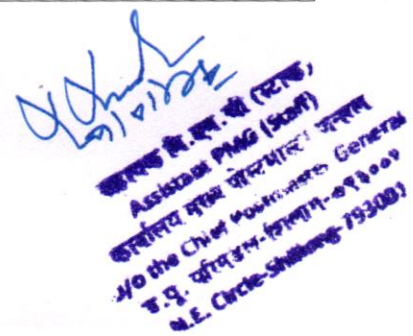 Assistant PMG (Staff)
कार्यालय मुख्य पोस्टमास्टर जनरल
O/o the Chief Postmaster General
उ.पू. परिमंडल-शिलांग-793001
N.E. Circle-Shillong-793001